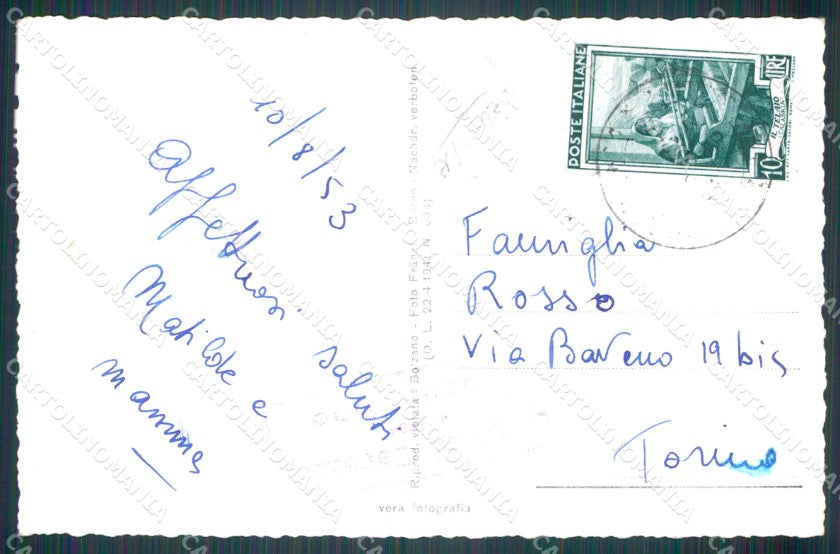 10/8/53
Affettuosi saluti
Matilde e
mamma
POSTE ITALIANE
10 LIRE
IL TELAIO
Famiglia
Rosso
Via Baveno 19 bis
Torino
Riprod. vietata - Bolzano - Foto Nachdr. verboten
(D. L. 22-4-1941 N.
vera fotografia
CARTOLINOMANIA